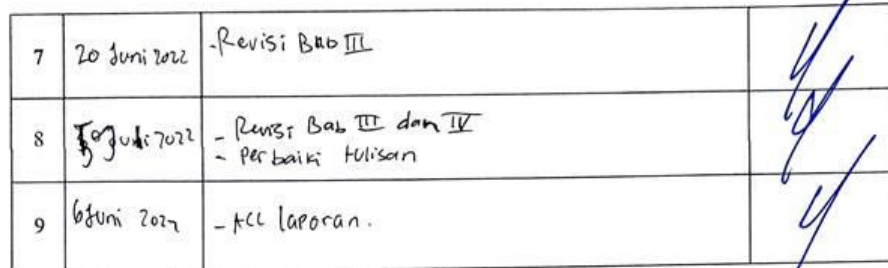 7 20 Juni 2022 - Revisi Bab III
8 Juni 2022 - Revisi Bab III dan IV
- Perbaiki tulisan
9 6 Juni 2022 - ACC laporan.